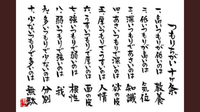 つもりちがい十ヶ条
一、高いつもりで低いのは 教養
二、低いつもりで高いのは 気位
三、深いつもりで浅いのは 知識
四、あさいつもりで深いのは 欲
五、厚いつもりでうすいのは 人情
六、うすいつもりで厚いのは 面の皮
七、強いつもりで弱いのは 根性
八、弱いつもりで強いのは 我
九、多いつもりで少ないのは 分別
十、少ないつもりで多いのは 無駄